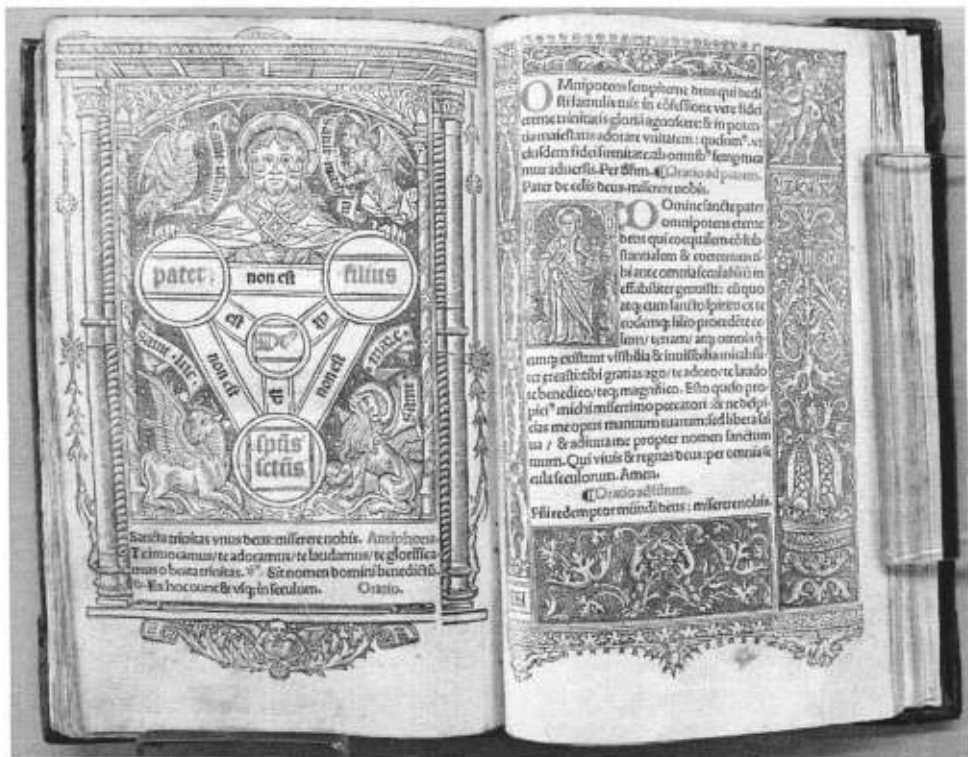 pater
non est
filius
est
est
non est
non est
est
spūs
sctūs
Sancta trinitas vnus deus: miserere nobis. Antiphona.
Te inuocamus/te adoramus/te laudamus/te glorifica
mus o beata trinitas. Sit nomen domini benedictū
Ex hoc nunc & vsq; in seculum. Oratio.
OMnipotens sempiterne deus qui dedi
sti famulis tuis in cōfessione vere fidei
eterne trinitatis gloriā agnoscere: & in poten
tia maiestatis adorare vnitatem: quesum⁹. vt
eiusdem fidei firmitate: ab omnib⁹ semp
mur aduersis. Per ¶Oratio ad patrem.
Pater de celis deus: miserere nobis.
DOmine sancte pater
omnipotens eterne
deus qui coequalem cōsub
stantialem & coeternum ti
bi ante omnia secula filiū in
effabiliter genuisti: cū quo
atq; cum sancto spiritu ex te
eodemq; filio procedēte ce
lum/ terram/ atq; omnia q̄
cunq; existunt visibilia & inuisibilia
creasti: tibi gratias ago/ te adoro/ te laudo
te benedico/ teq; magnifico. Esto queso pro
pici⁹ michi miserrimo peccatori: & ne despi
cias me opus manuum tuarum: sed libera sal
ua/ & adiuua me propter nomen sanctum
tuum. Qui viuis & regnas deus: per omnia se
cula seculorum. Amen.
¶Oratio ad filium.
Fili redemptor mūndi deus: miserere nobis.